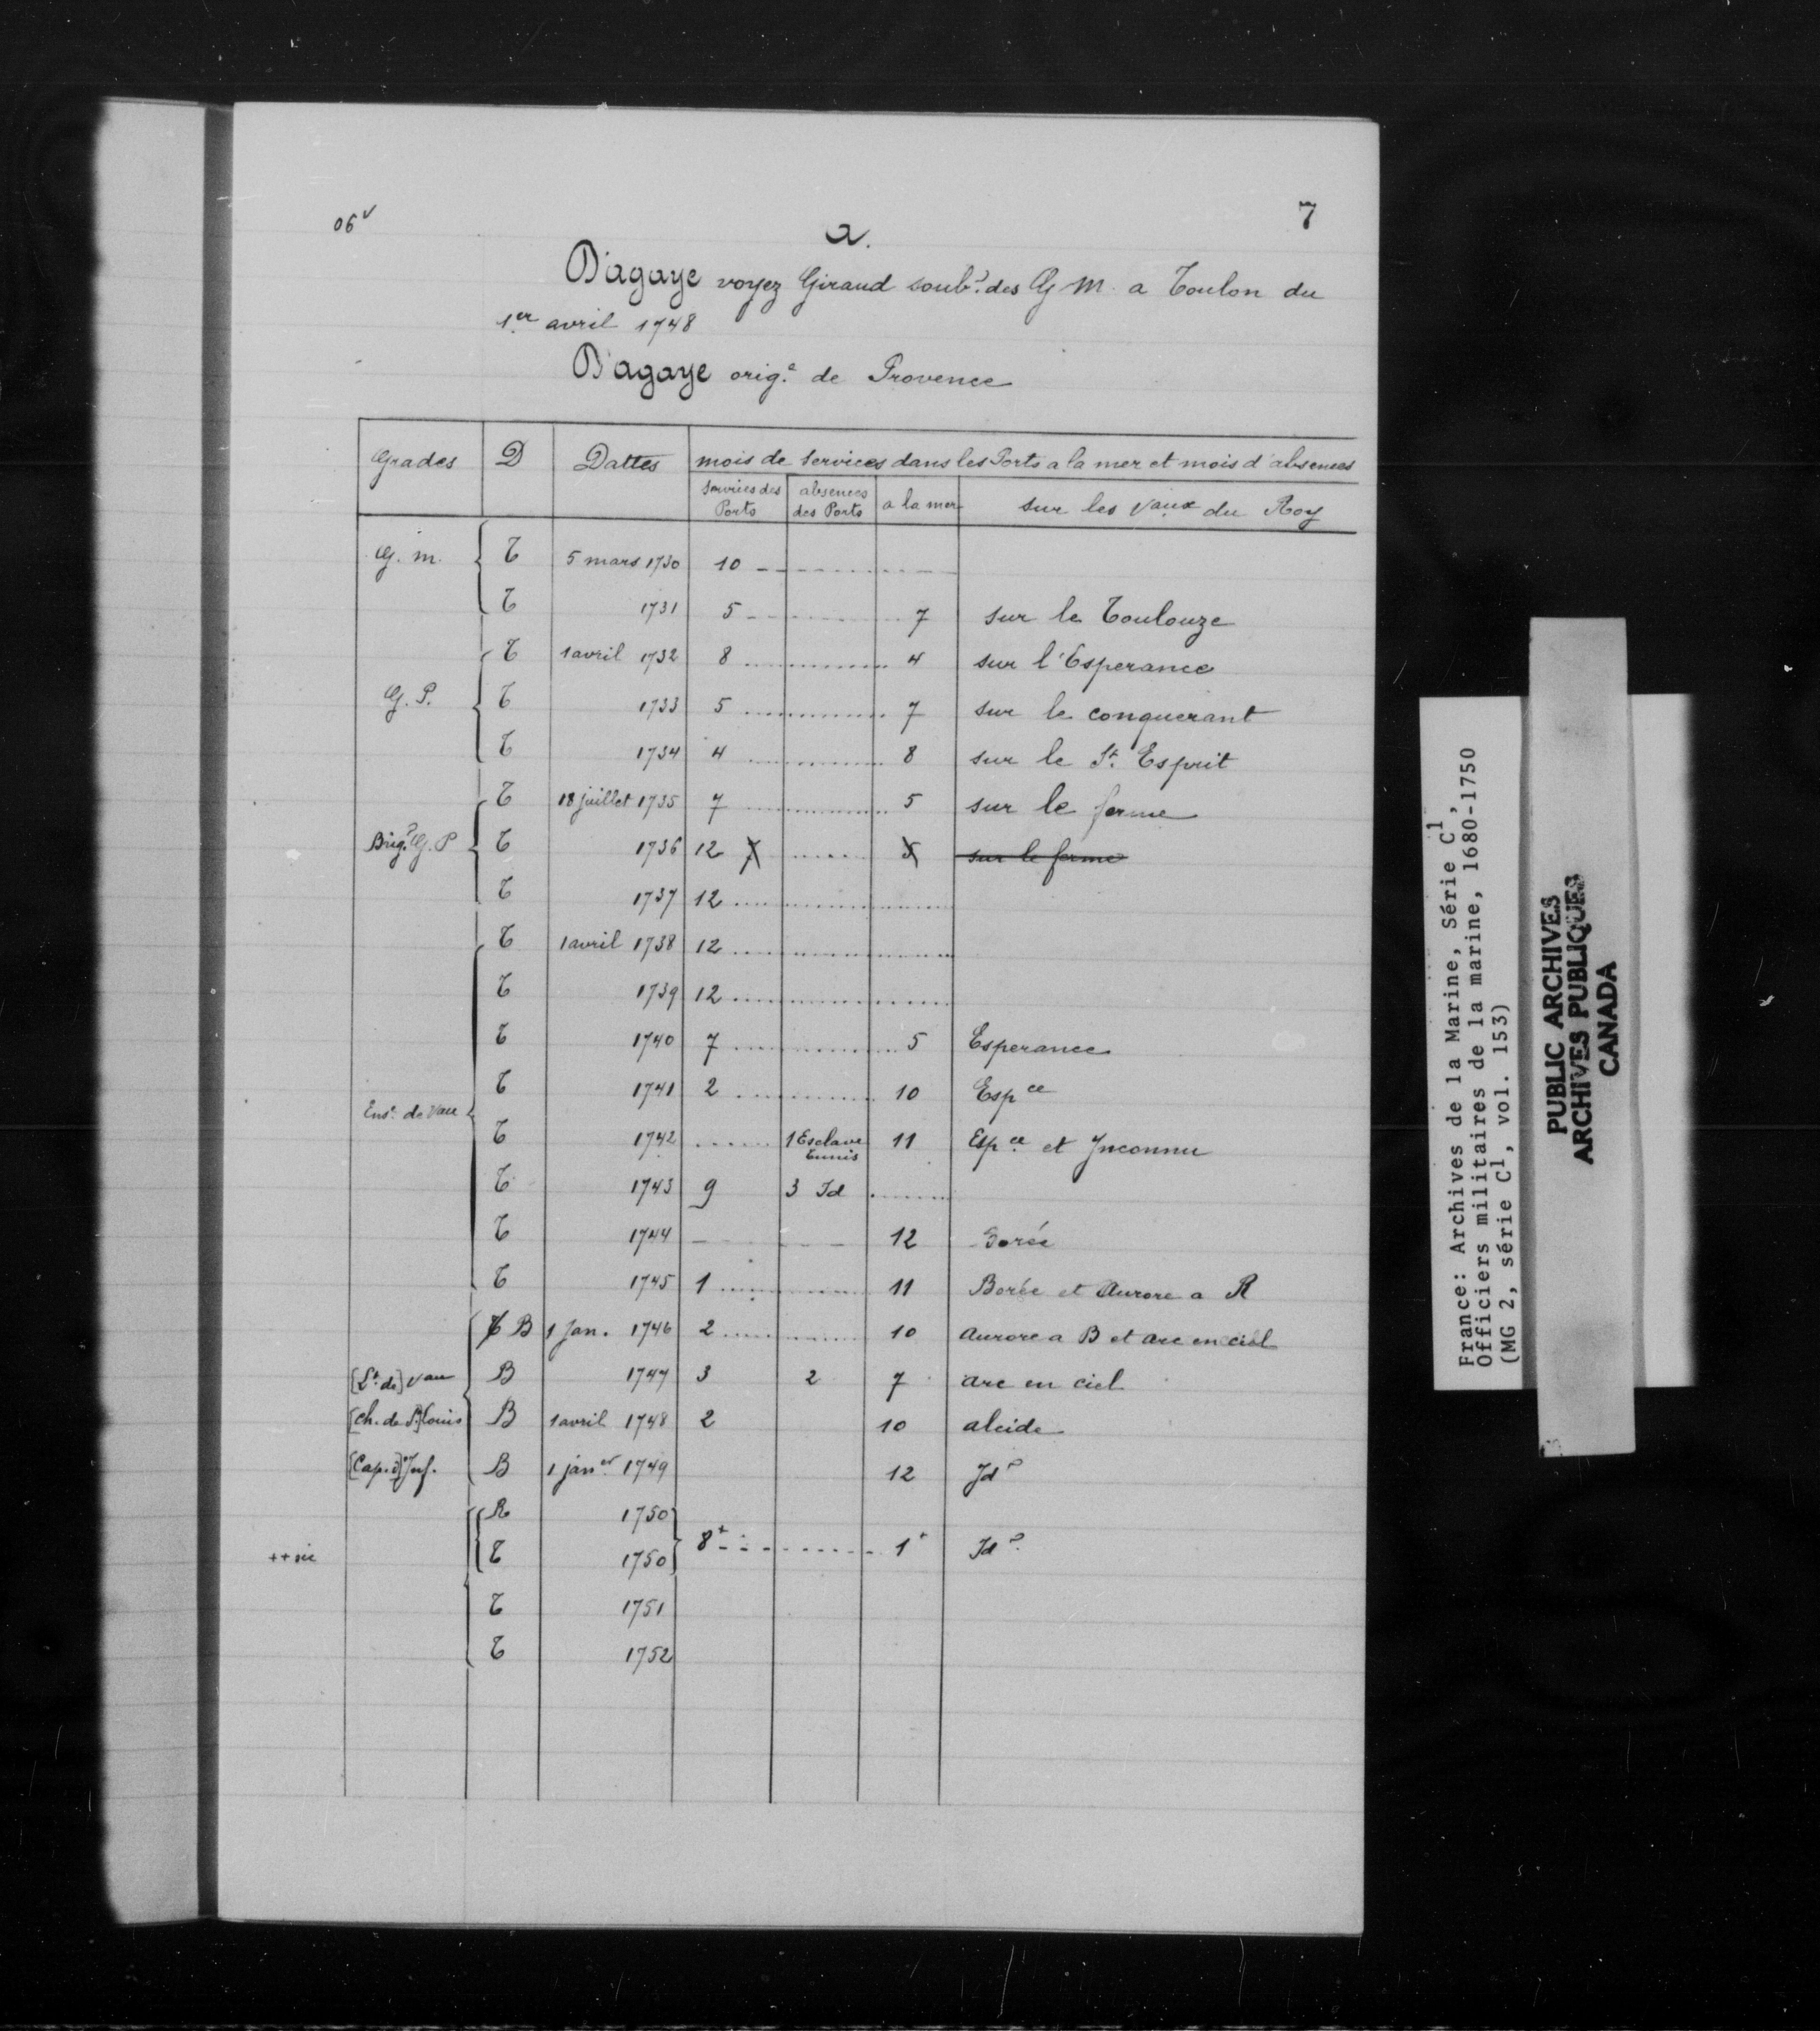 06v
7
a.
D'agaye voyez Giraud soubr. des G M a Toulon du
1.er avril 1748
D'agaye orig.e de Provence
Grades D Dattes mois de services dans les Ports a la mer et mois d'absences
services des Ports absences des Ports a la mer sur les Vaux du Roy
G. m. T 5 mars 1730 10
T 1731 5 7 sur le Toulouze
T 1 avril 1732 8 4 sur l'Esperance
G. P. T 1733 5 7 sur le conquerant
T 1734 4 8 sur le St. Esprit
T 18 juillet 1735 7 5 sur le ferme
Brig.r G. P T 1736 12 7 5 sur le ferme
T 1737 12
T 1 avril 1738 12
T 1739 12
T 1740 7 5 Esperance
T 1741 2 10 Esp ce
Ens.e de Vau
T 1742 1 Esclave Tunis 11 Esp.ce et Inconnu
T 1743 9 3 Id
T 1744 12 Borée
T 1745 1 11 Borée et Aurore a R
T B 1 Jan. 1746 2 10 Aurore a B et arc en ciel
[Lt de] Vau B 1747 3 2 7 arc en ciel
[ch. de St] Louis B 1 avril 1748 2 10 alcide
[Cap. d'] Inf. B 1 jan.er 1749 12 Id.
R 1750
++ sic T 1750 8+ 1+ Id.
T 1751
T 1752
France: Archives de la Marine, Série C1,
Officiers militaires de la marine, 1680-1750
(MG 2, série C1, vol. 153)
PUBLIC ARCHIVES
ARCHIVES PUBLIQUES
CANADA